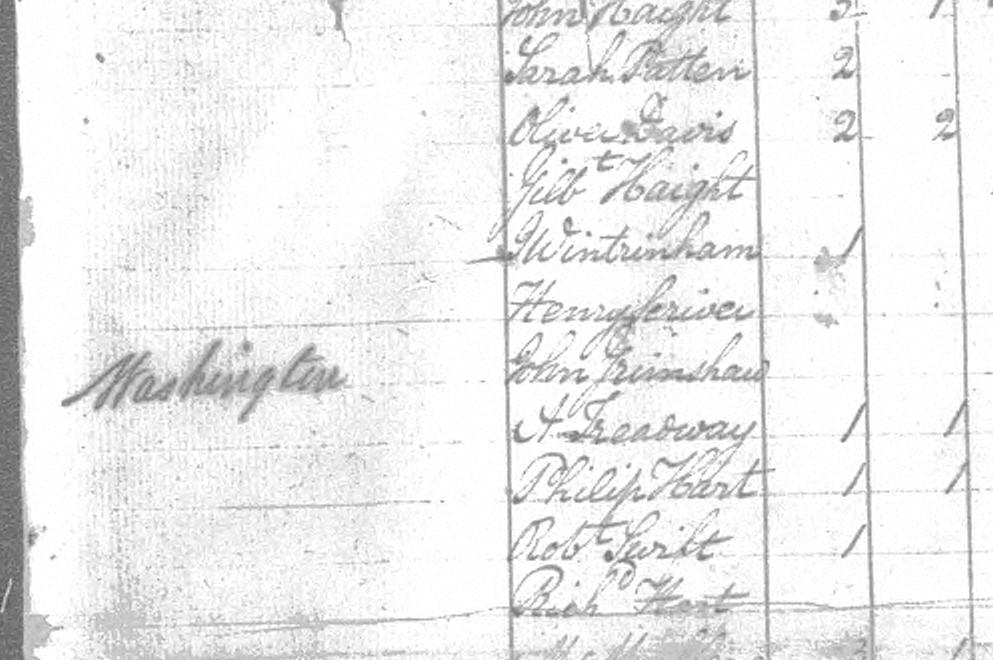 John Haight 3 1
Sarah Patten 2
Oliver Davis 2 2
Gilbt Haight
Wintrinham 1
Henry Scriver
Washington John Grimshaw
A Treadway 1 1
Philip Hart 1 1
Robt Swift 1
Richd Hart